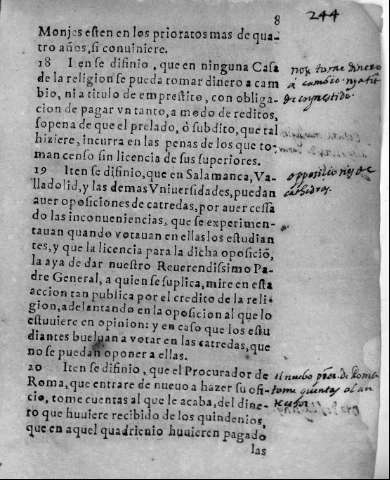 8
244
Monjes esten en los prioratos mas de qua-
tro años, si conuiniere.
18 I en se difinio, que en ninguna Casa
de la religion se pueda tomar dinero a cam
bio, ni a titulo de emprestito, con obliga-
cion de pagar vn tanto, a modo de reditos,
so pena de que el prelado, ò subdito, que tal
hiziere, incurra en las penas de los que to-
man censo sin licencia de sus superiores.
nos tome dinero
a cambio
19 Iten se difinio, que en Salamanca, Va-
lladolid, y las demas Vniuersidades, puedan
auer oposiciones de catredas, por auer cessa
do las inconueniencias, que se experimen-
tauan quando votauan en ellas los estudian
tes, y que la licencia para la dicha oposició,
la aya de dar nuestro Reuerendissimo Pa-
dre General, a quien se suplica, mire en esta
accion tan publica por el credito de la reli-
gion, adelantando en la oposicion al que lo
estuuiere en opinion: y en caso que los estu
diantes bueluan a votar en las catredas, que
no se puedan oponer a ellas.
opposiciones de
cathedras.
20 Iten se difinio, que el Procurador de
Roma, que entrare de nueuo a hazer su ofi-
cio, tome cuentas al que le acaba, del dine-
ro que huuiere recibido de los quindenios,
que en aquel quadrienio huuieren pagado
las
el nuebo de Roma
tome quentas al an